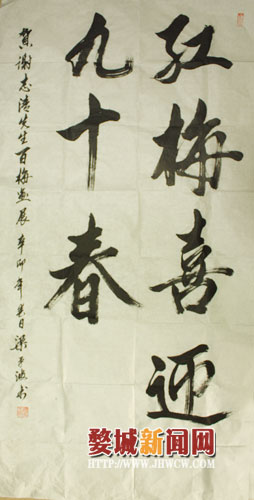 红梅喜迎
九十春
贺谢志浩先生百梅画展 辛卯年 夏日 梁平波书
婺城新闻网
HTTP://WWW.JHWCW.COM